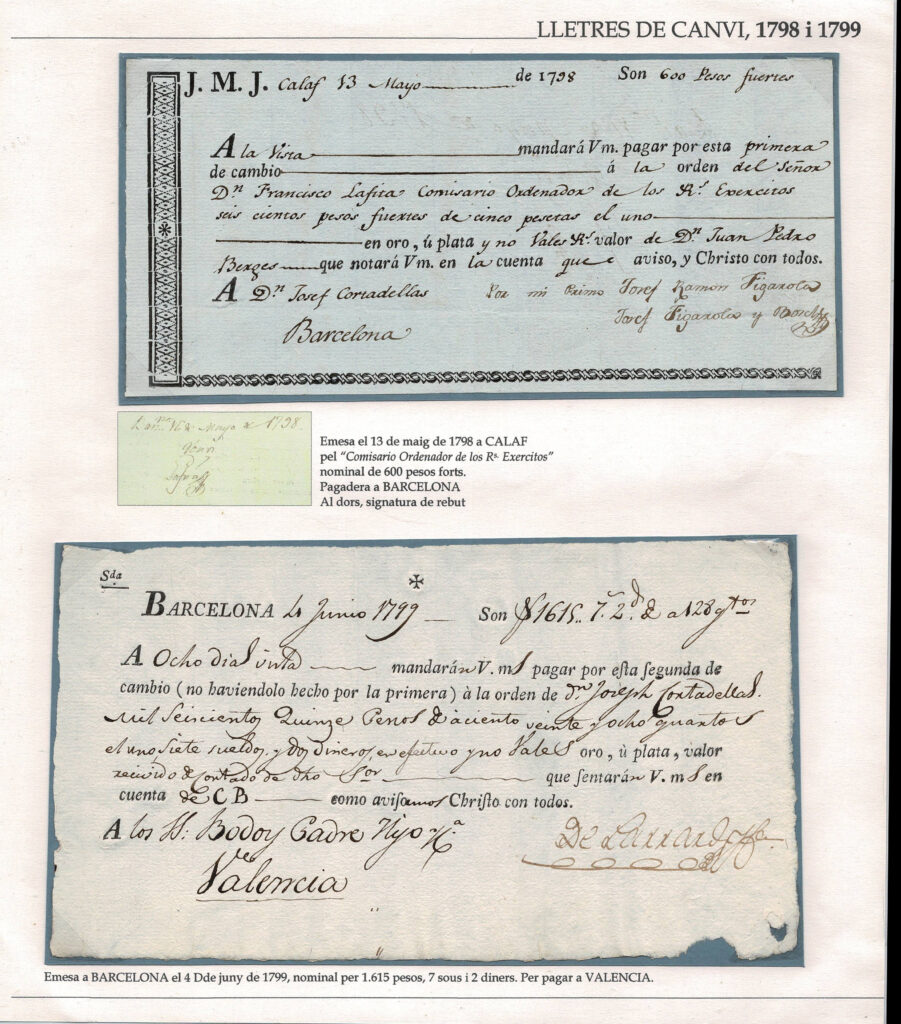 LLETRES DE CANVI, 1798 i 1799
J. M. J. Calaf 13 Mayo de 1798 Son 600 Pesos fuertes
A la Vista mandará Vm. pagar por esta primera
de cambio á la orden del Señor
Dn Francisco Lafita Comisario Ordenador de los Rs. Exercitos
seis cientos pesos fuertes de cinco pesetas el uno
en oro, ú plata y no Vales Rs. valor de Dn Juan Pedro
Berges que notará Vm. en la cuenta que aviso, y Christo con todos.
A Dn Josef Cortadellas Por mi Primo Josef Ramon Figarola
Josef Figarola y
Barcelona
Mayo 1798
Emesa el 13 de maig de 1798 a CALAF
pel “Comisario Ordenador de los Rs. Exercitos”
nominal de 600 pesos forts.
Pagadera a BARCELONA
Al dors, signatura de rebut
Sda
BARCELONA 4 Junio 1799 Son $1615.. 7s. 2d. de a 128 qtos
A Ocho dias vista mandarán V. ms pagar por esta segunda de
cambio (no haviendolo hecho por la primera) à la orden de dn Joseph Cortadellas.
Mil Seiscientos Quinze Pesos de aciento veinte y ocho quartos
el uno, siete sueldos, y dos dineros, en efetivo y no Vales oro, ù plata, valor
recivido de Contado de dho Sor que sentarán V. ms en
cuenta de C B como avisamos Christo con todos.
A los SS: Bodoy Padre Hijo
Valencia
Emesa a BARCELONA el 4 Dde juny de 1799, nominal per 1.615 pesos, 7 sous i 2 diners. Per pagar a VALENCIA.